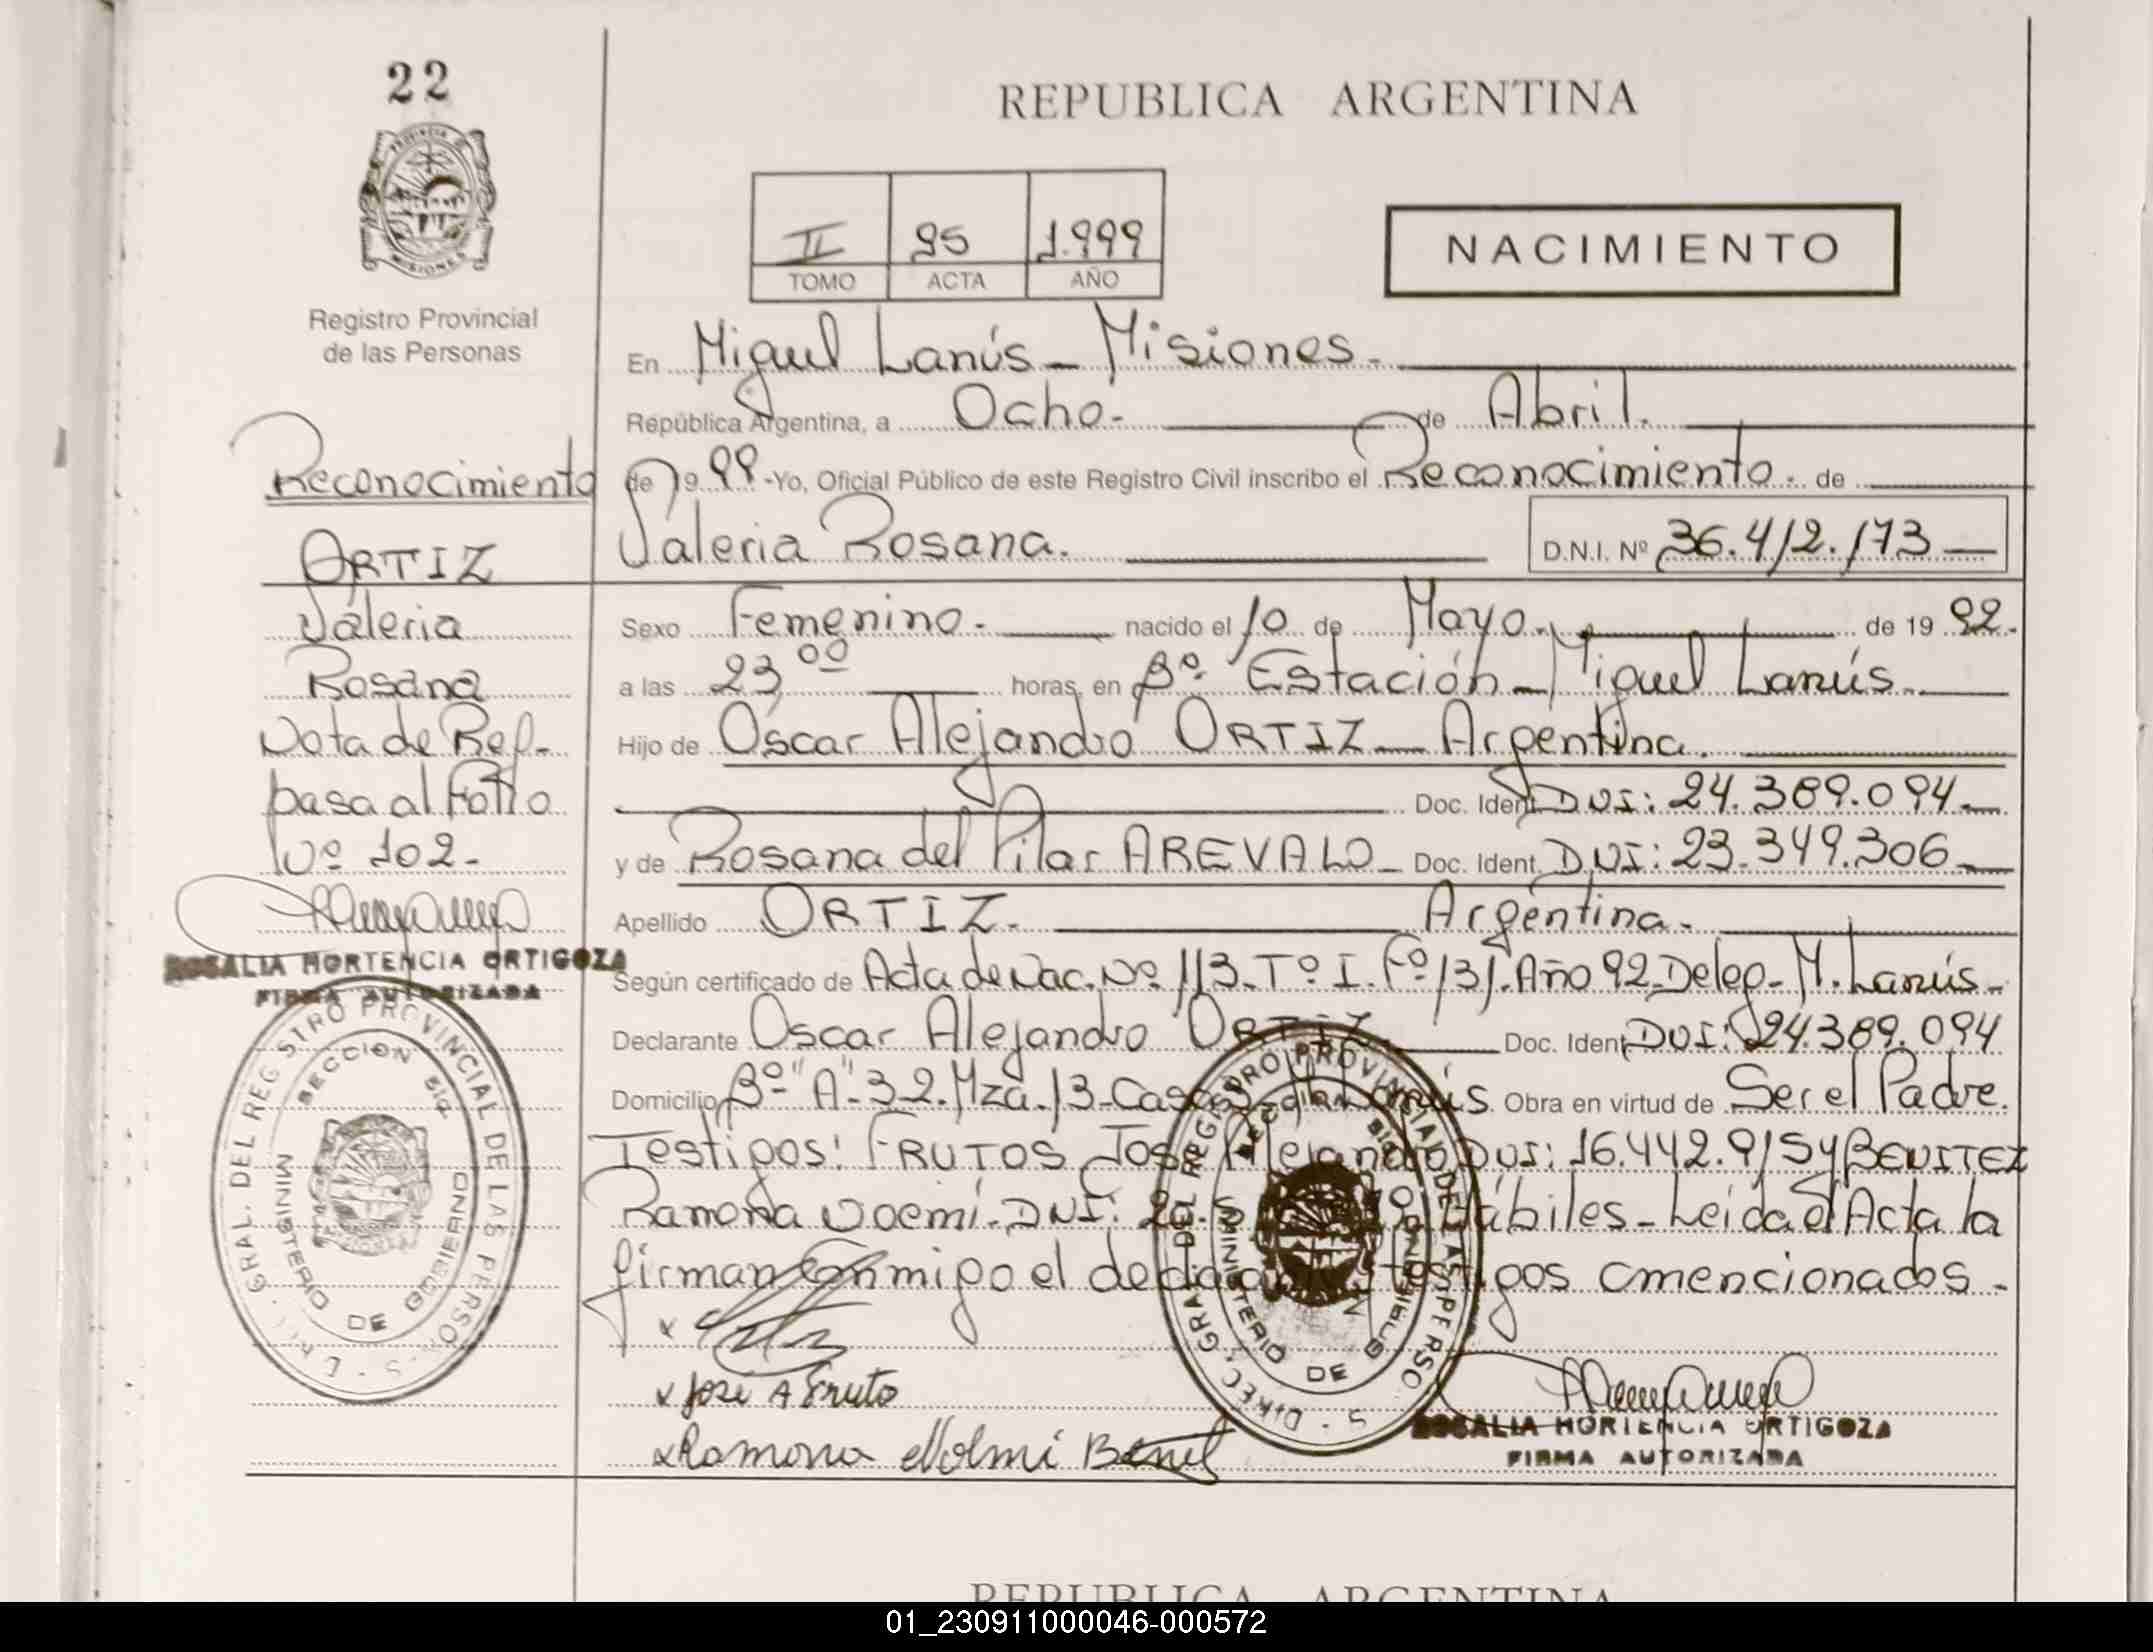 22
PROVINCIA DE
MISIONES
Registro Provincial
de las Personas
Reconocimiento
ORTIZ
Valeria
Rosana
Nota de Ref.
pasa al Folio
Nº 102.
ROSALIA HORTENCIA ORTIGOZA
FIRMA AUTORIZADA
GRAL. DEL REGISTRO PROVINCIAL DE LAS PERSO
SECCION
MINISTERIO DE GOBIERNO
REPUBLICA ARGENTINA
II 95 1.999
TOMO ACTA AÑO
NACIMIENTO
En Miguel Lanús - Misiones.
República Argentina, a Ocho. de Abril.
de 19 99 -Yo, Oficial Público de este Registro Civil inscribo el Reconocimiento. de
Valeria Rosana. D.N.I. Nº 36.412.173
Sexo Femenino. nacido el 10 de Mayo. de 19 92.
a las 23,00 horas, en Bº Estación - Miguel Lanús.
Hijo de Oscar Alejandro ORTIZ - Argentina.
Doc. Ident. DNI: 24.389.094.
y de Rosana del Pilar AREVALO - Doc. Ident. DNI: 23.349.306
Apellido ORTIZ. Argentina.
Según certificado de Acta de Nac. Nº 113. Tº I. Fº 131. Año 92 Deleg. M. Lanús.
Declarante Oscar Alejandro ORTIZ Doc. Ident. DNI: 24.389.094
Domicilio Bº "A" 3-2. Mza. 13. Casa Lanús. Obra en virtud de Ser el Padre.
Testigos: FRUTOS José Alejandro DNI: 16.442.915 y BENITEZ
Ramona Noemí. DNI: Hábiles - Leida el Acta la
firman conmigo el declarante testigos mencionados.
x
x José A Fruto
x Ramona Nolmi Benit
DIREC. GRAL. DEL REGISTRO PROVINCIAL DE LAS PERSO S
SECCION
MINISTERIO DE GOBIERNO
ROSALIA HORTENCIA ORTIGOZA
FIRMA AUTORIZADA
REPUBLICA ARGENTINA
01_230911000046-000572